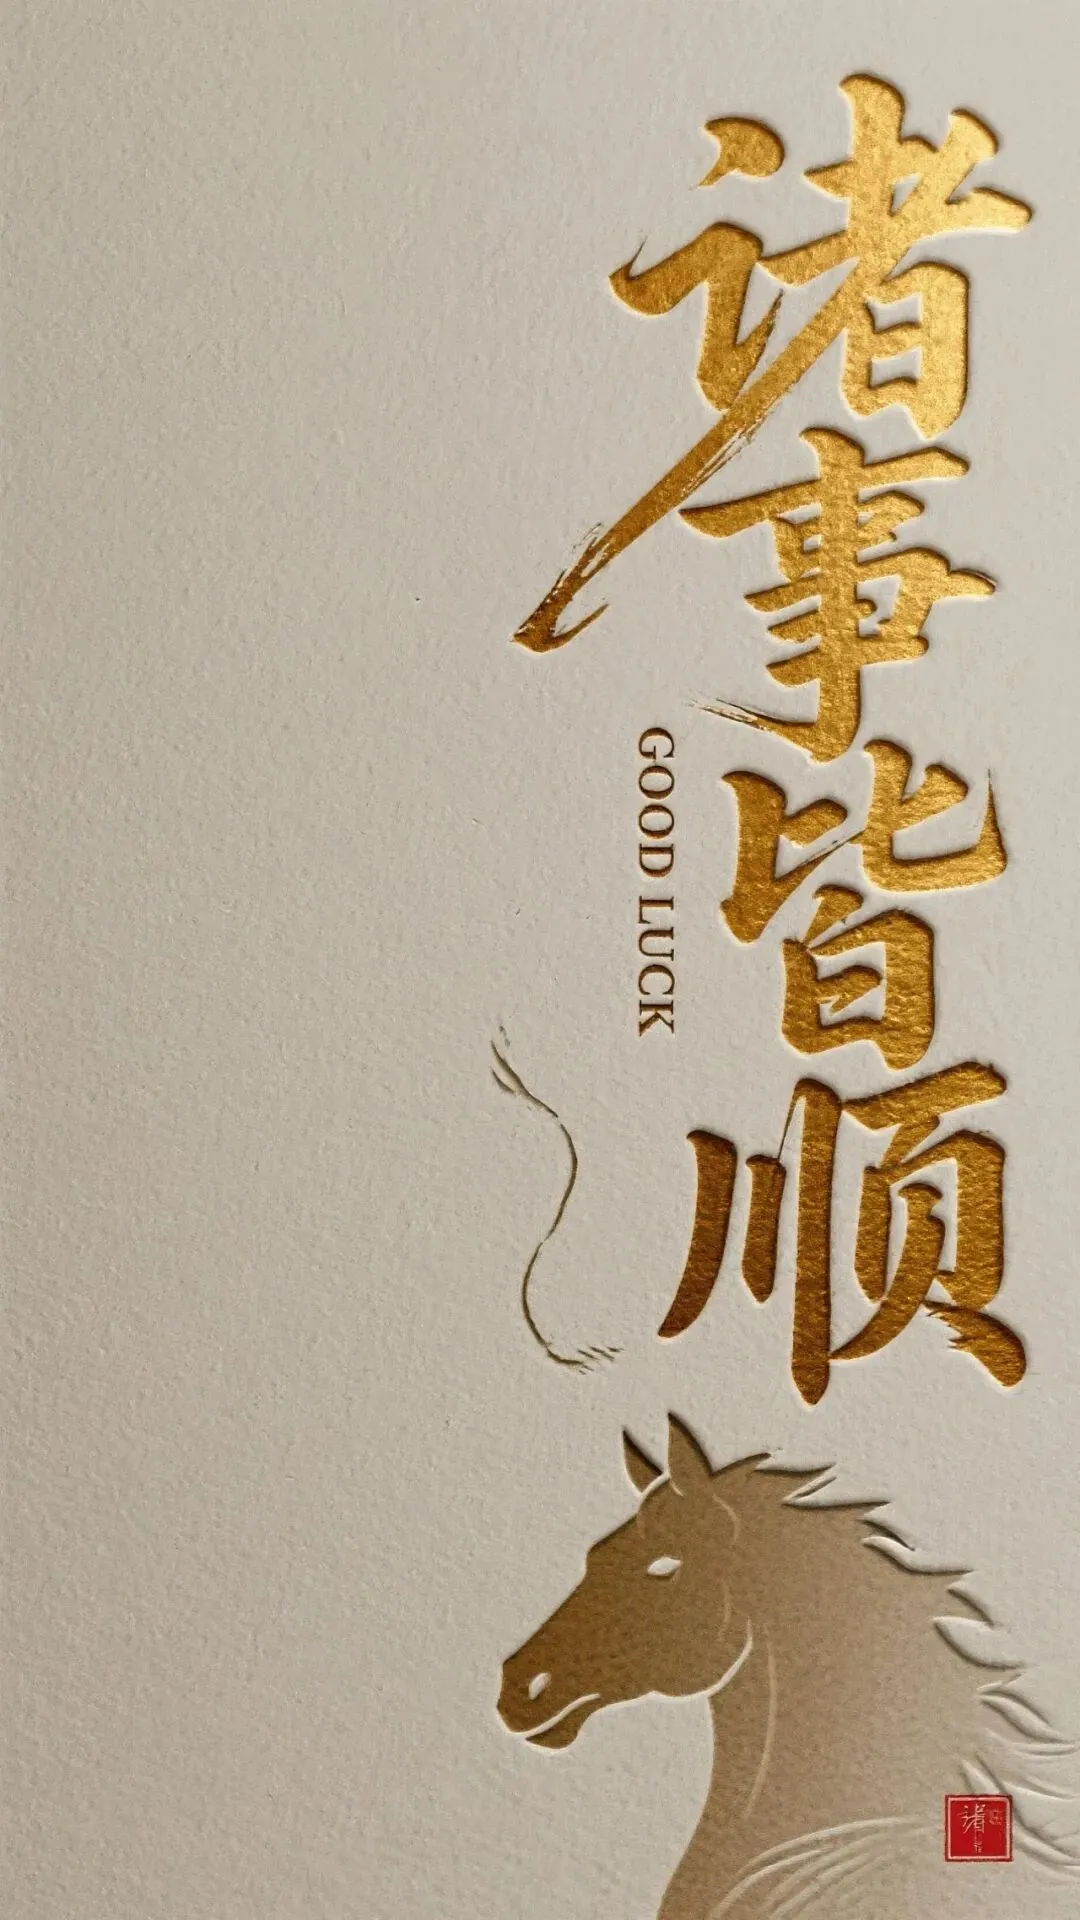 诸事皆顺
GOOD LUCK